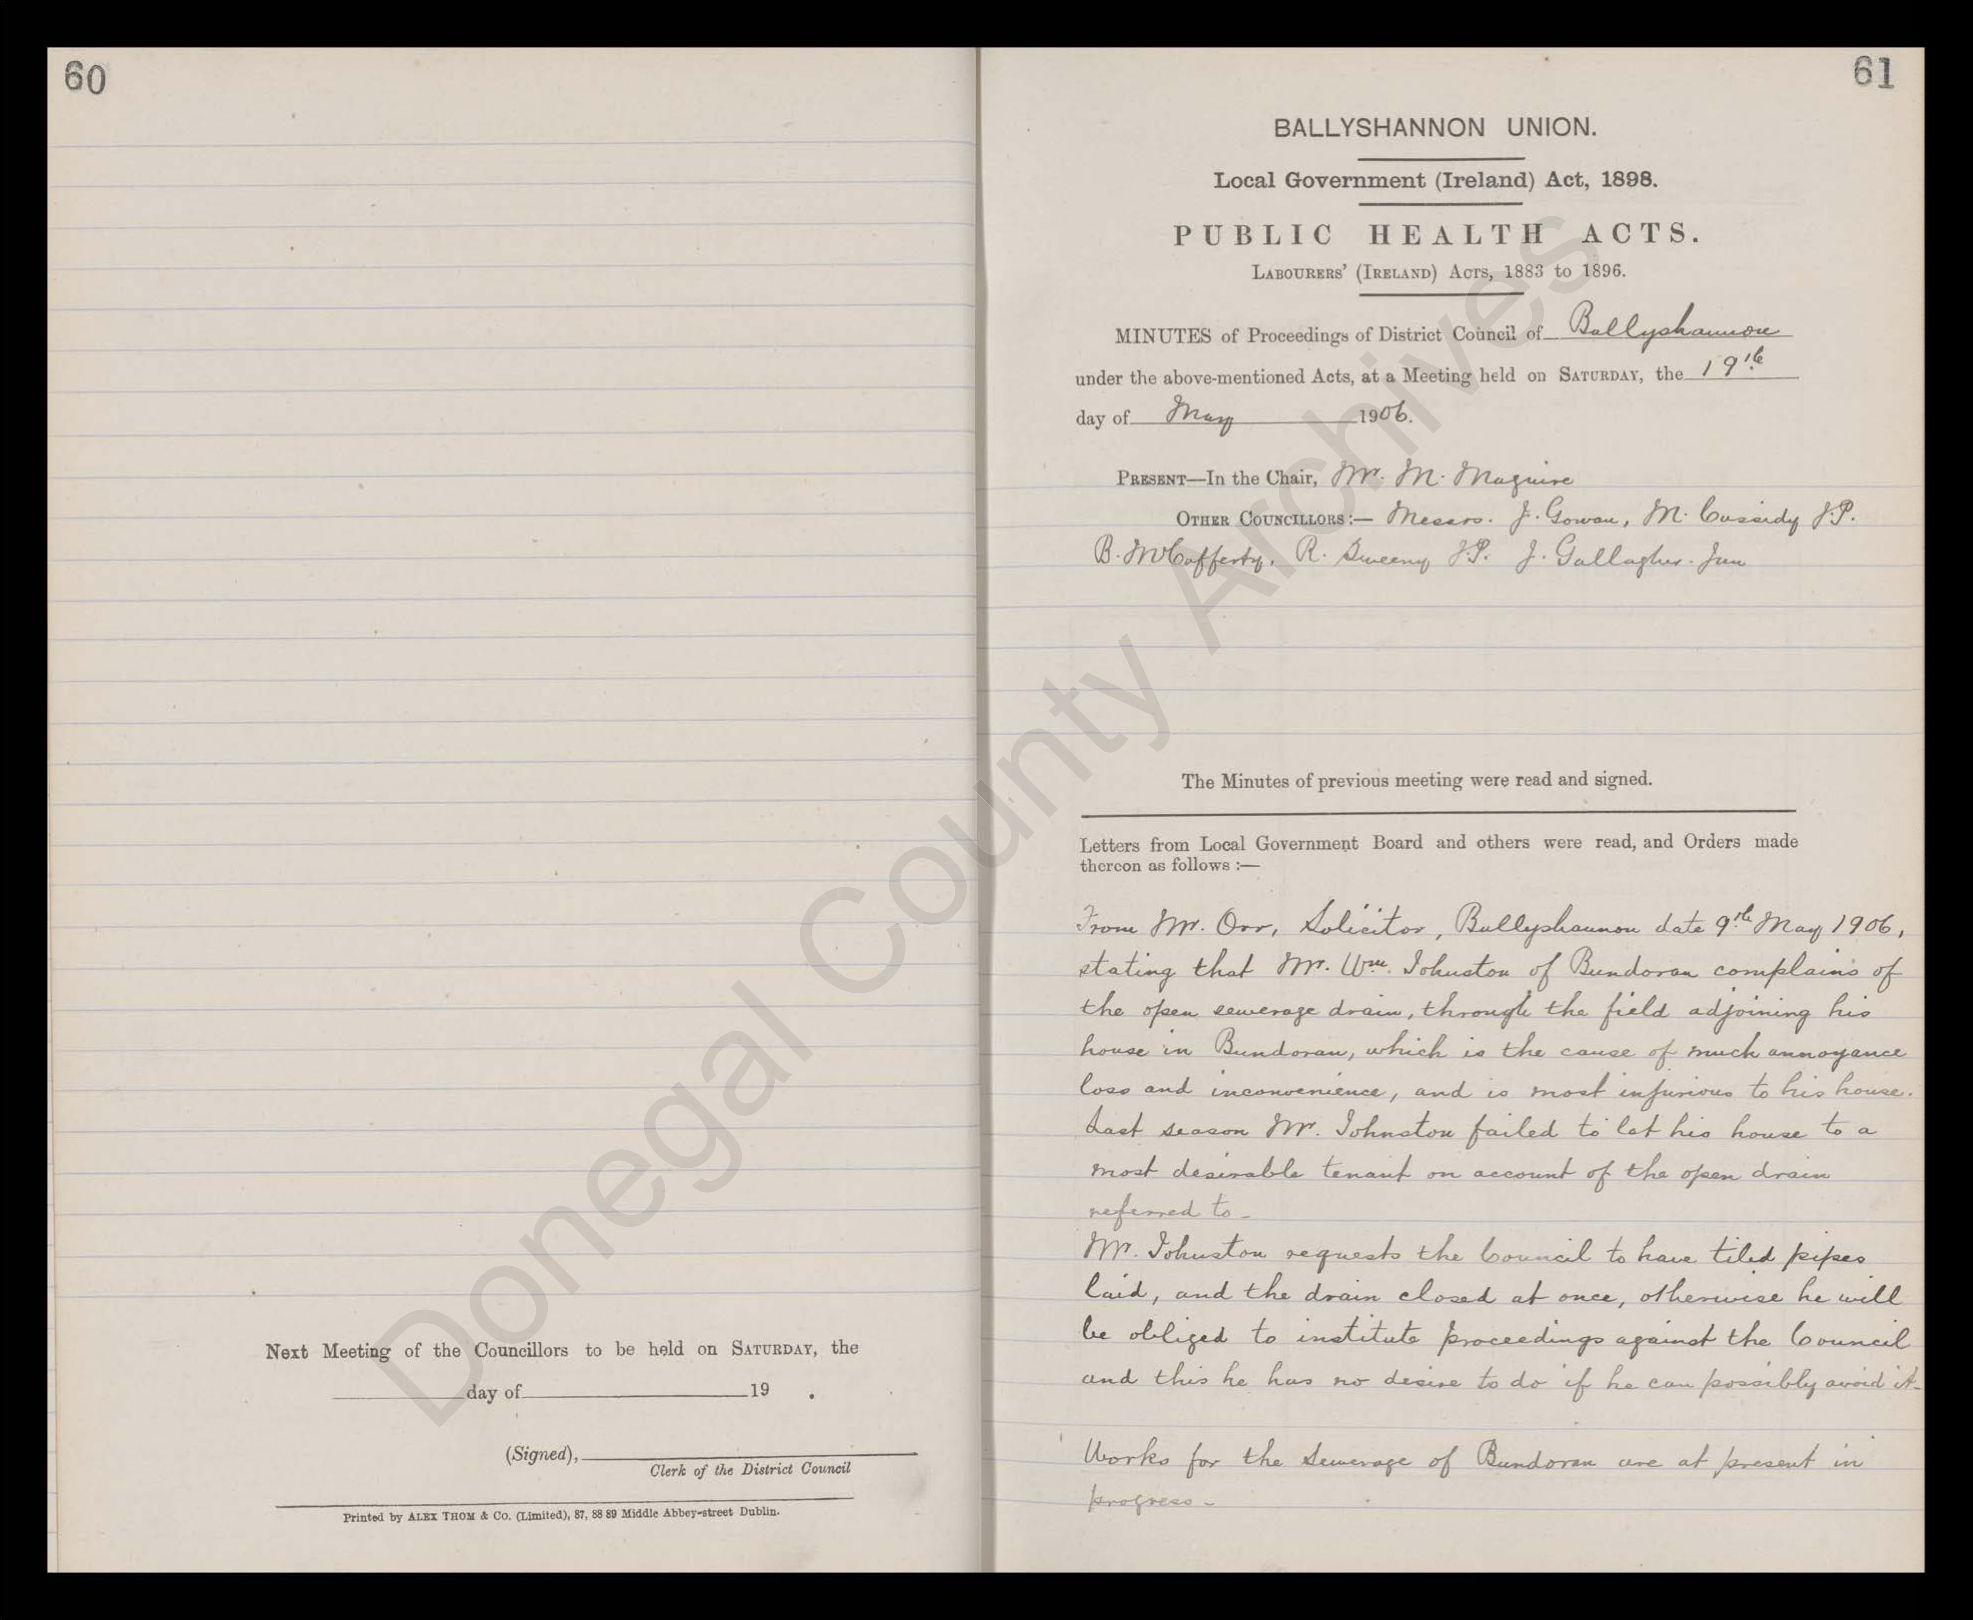 60
Next Meeting of the Councillors to be held on SATURDAY, the
day of 19 .
(Signed),
Clerk of the District Council
Printed by ALEX THOM & Co. (Limited), 87, 88 89 Middle Abbey-street Dublin.
61
BALLYSHANNON UNION.
Local Government (Ireland) Act, 1898.
PUBLIC HEALTH ACTS.
LABOURERS' (IRELAND) ACTS, 1883 to 1896.
MINUTES of Proceedings of District Council of Ballyshannon
under the above-mentioned Acts, at a Meeting held on SATURDAY, the 19th
day of May 1906.
PRESENT—In the Chair, Mr. M. Maguire
OTHER COUNCILLORS:— Messrs. J. Gowan, M. Cassidy J.P.
B. McCafferty, R. Sweeny J.P. J. Gallagher. Jun
The Minutes of previous meeting were read and signed.
Letters from Local Government Board and others were read, and Orders made
thereon as follows :—
From Mr. Orr, Solicitor, Ballyshannon date 9th May 1906,
stating that Mr. Wm. Johnston of Bundoran complains of
the open sewerage drain, through the field adjoining his
house in Bundoran, which is the cause of much annoyance
loss and inconvenience, and is most injurious to his house.
Last season Mr. Johnston failed to let his house to a
most desirable tenant on account of the open drain
referred to -
Mr. Johnston requests the Council to have tiled pipes
laid, and the drain closed at once, otherwise he will
be obliged to institute proceedings against the Council
and this he has no desire to do if he can possibly avoid it -
Works for the Sewerage of Bundoran are at present in
progress -
Donegal County Archives